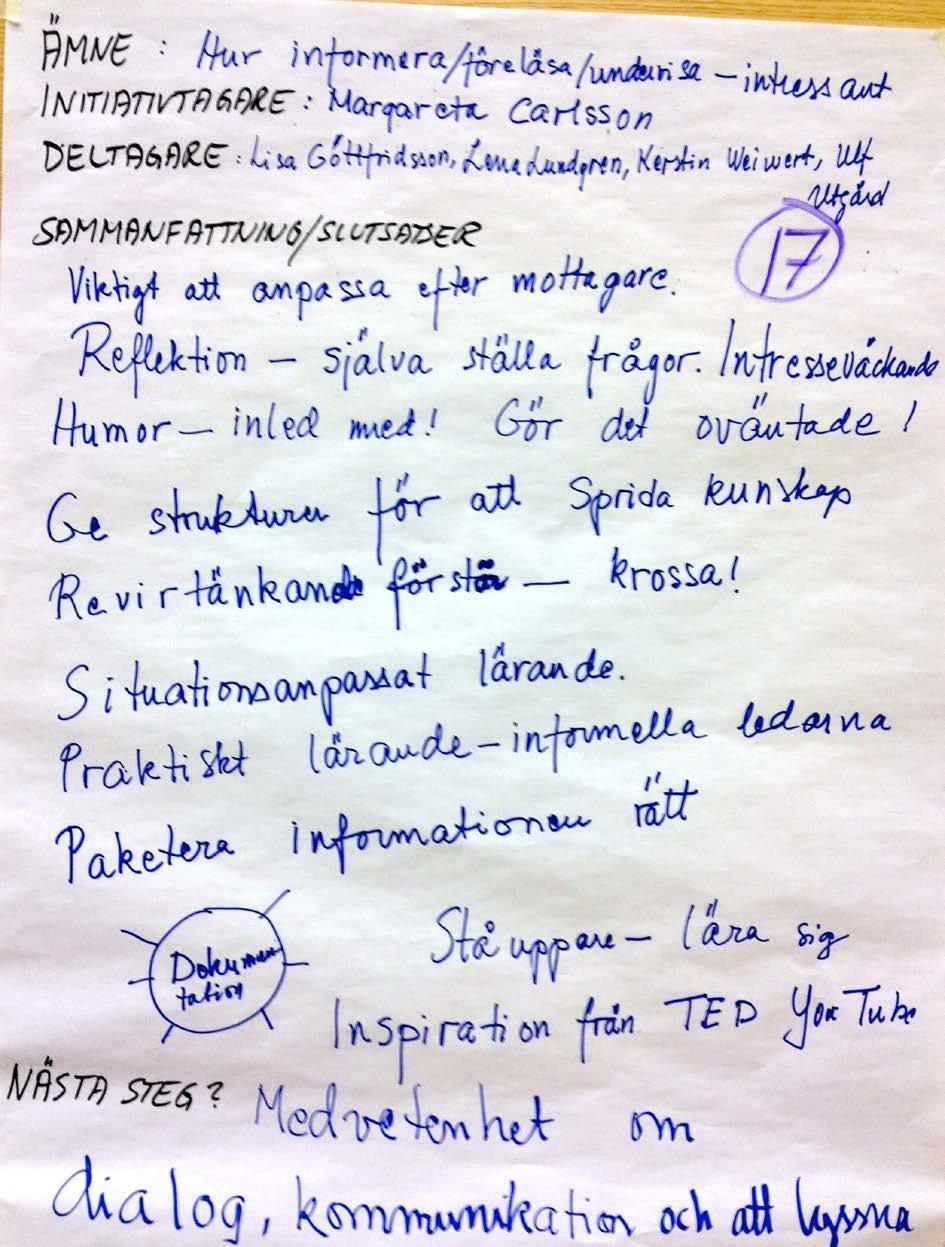 ÄMNE : Hur informera/föreläsa/undervisa – intressant
INITIATIVTAGARE : Margareta Carlsson
DELTAGARE : Lisa Göttfridsson, Lena Lundgren, Kerstin Weiwert, Ulf
Utgård
SAMMANFATTNING/SLUTSATSER
17
Viktigt att anpassa efter mottagare.
Reflektion – själva ställa frågor. Intresseväckande
Humor – inled med! Gör det oväntade!
Ge strukturer för att sprida kunskap
Revirtänkande förstör – krossa!
Situationsanpassat lärande.
Praktiskt lärande – informella ledarna
Paketera informationen rätt
Dokumen
tation
Stå uppare – lära sig
Inspiration från TED YouTube
NÄSTA STEG? Medvetenhet om
dialog, kommunikation och att lyssna